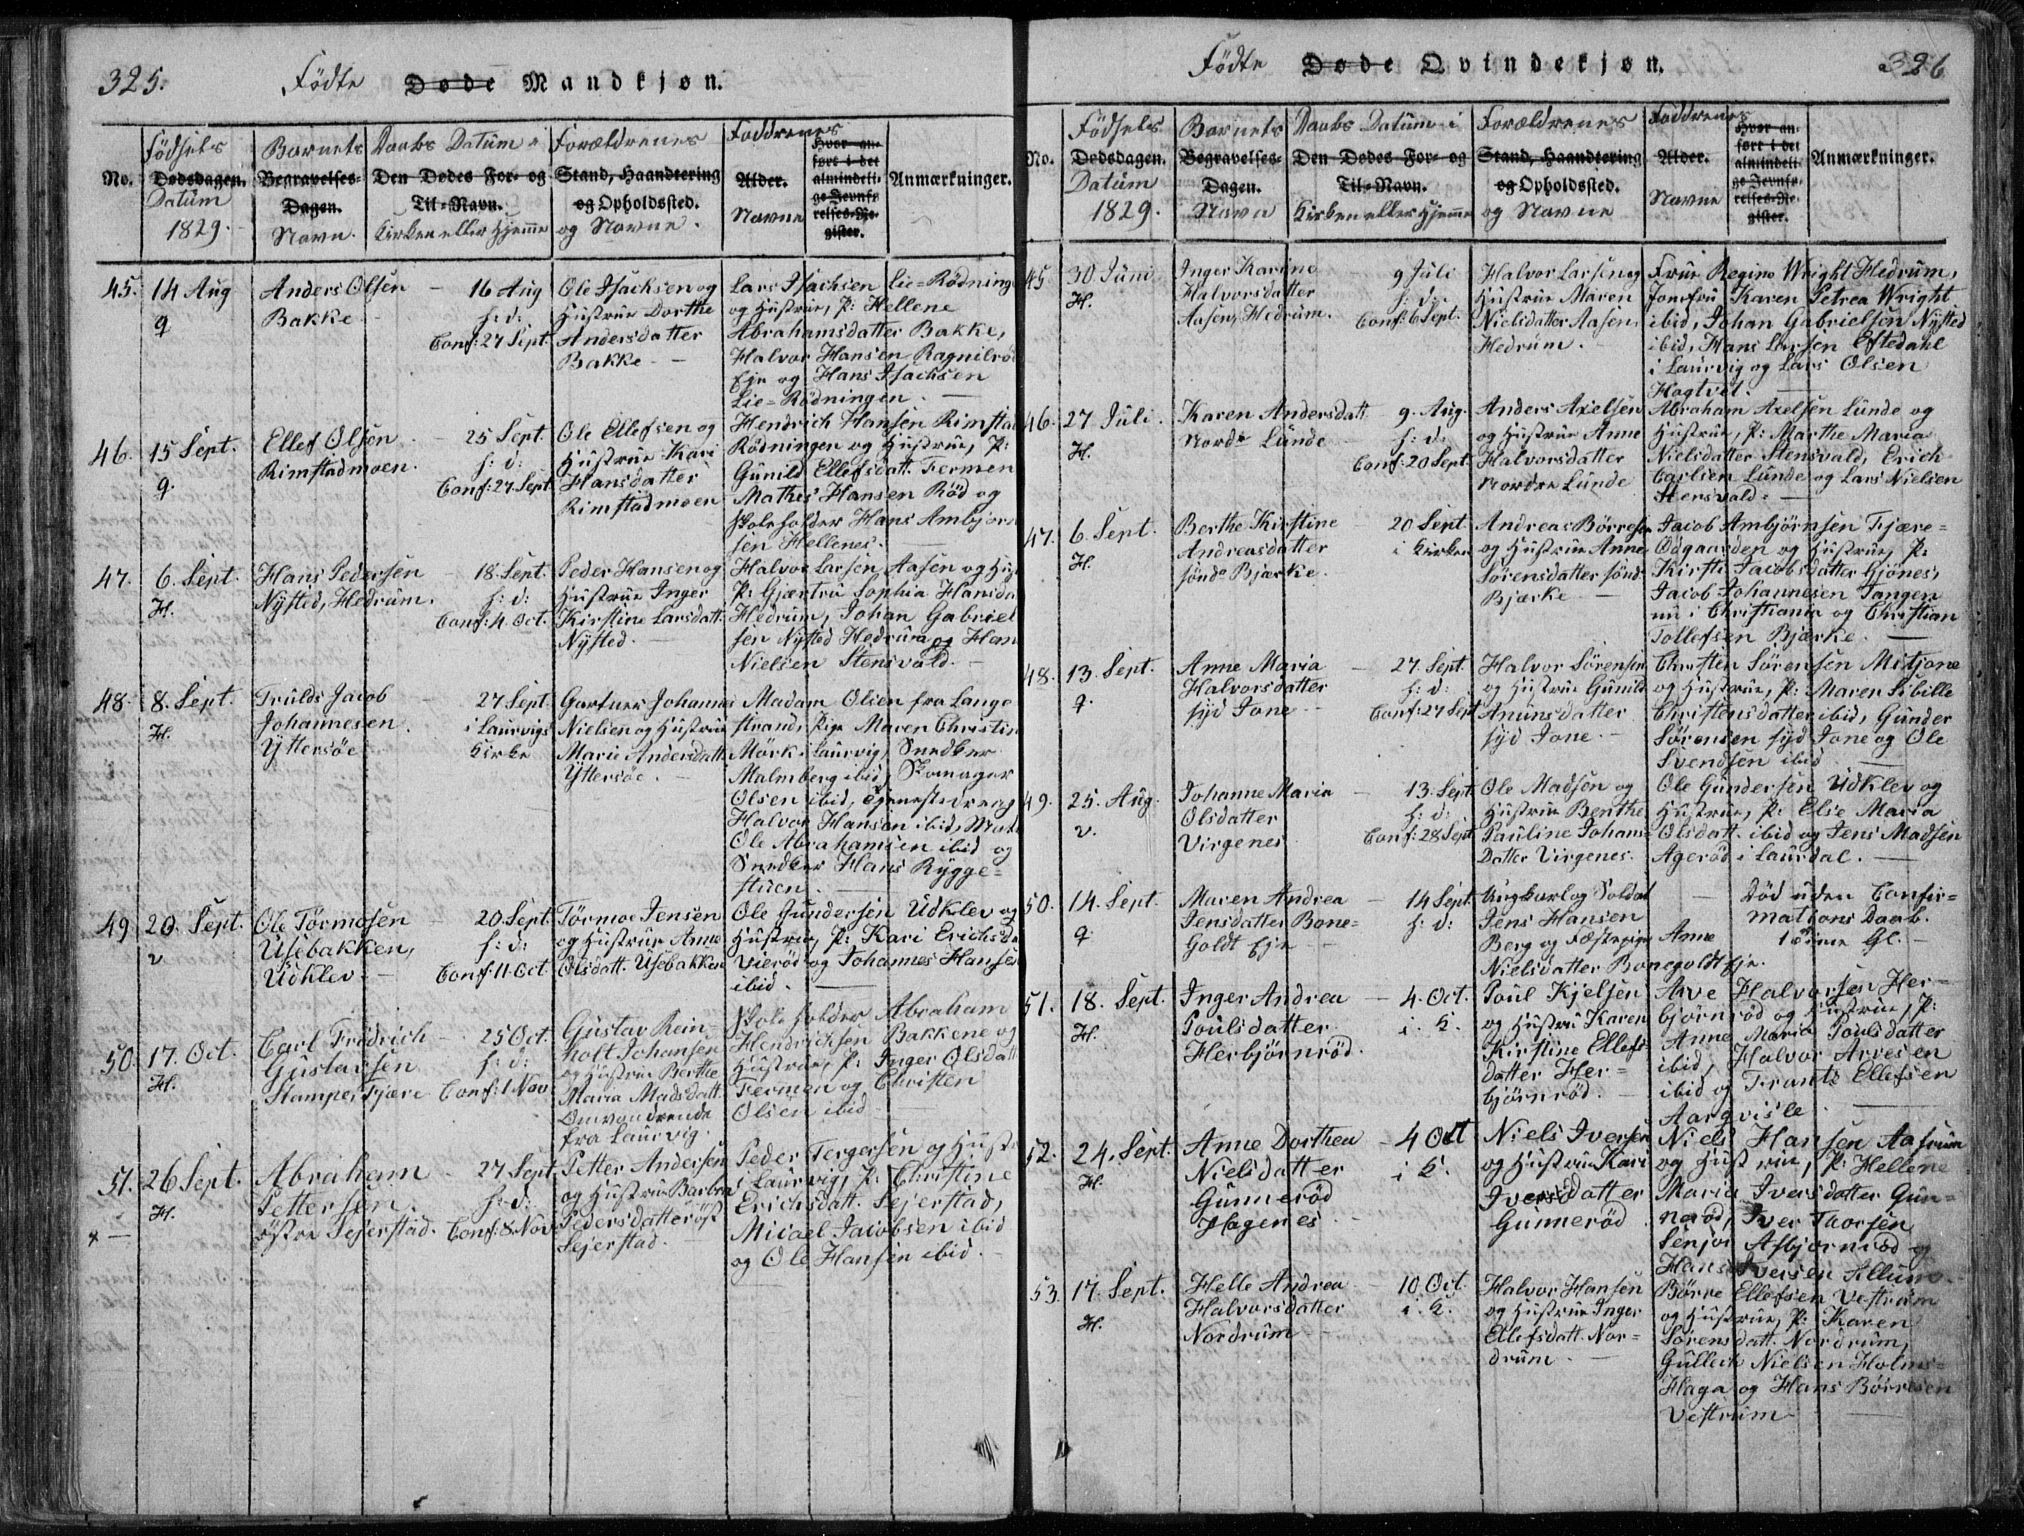 325.
Födte Døde Mandkjøn.
No.
Födsels
Dødsdagen.
Datum
1829.
Barnets
Begravelses-
Dagen.
Navn.
Daabs Datum i
Den Dødes For- og
Til-Navn.
Kirken eller Hjemme
Forældrenes
Stand, Haandtering
og Opholdssted.
og Navne.
Faddrenes
Alder.
Navne
Hvor an-
ført i det
almindeli-
ge Jevnfø-
relses-Re-
gister.
Anmærkninger.
45.
14 Aug
q
Anders Olsen
Bakke
16 Aug
h: d:
Conf: 27 Sept.
Ole Isachsen og
Hustrue Dorthe
Andersdatter
Bakke
Lars Isachsen Lie-Rödning
og Hustrue, P: Hellene
Abrahamsdatter Bakke,
Halvor Hansen Ragnilrö
Eje og Hans Isachsen
Lie-Rödningen.
46.
15 Sept.
q.
Ellef Olsen
Rimstadmoen.
25 Sept.
h: d:
Conf: 27 Sept.
Ole Ellefsen og
Hustrue Kari
Hansdatter
Rimstadmoen
Hendrich Hansen Rimstad
Rödningen og Hustrue, P:
Gunild Ellefsdatt. Fermen
Mathis Hansen Röd og
Skoleholder Hans Ambjörn
sen Hellenes.
47.
6. Sept.
H.
Hans Pedersen
Nysted, Hedrum.
18. Sept.
h: d:
Conf: 4. Oct.
Peder Hansen og
Hustrue Inger
Kirstine Larsdatt.
Nysted.
Halvor Larsen Aasen og Hu
P: Gjærtru Sophia Hansda
Hedrum, Johan Gabriel
sen Nysted Hedrum og Han
Nielsen Stensvald.
48.
8. Sept.
H.
Trulds Jacob
Johannesen
Yttersöe
27 Sept.
i Laurvigs
Kirke
Gartner Johannes
Nielsen og Hustrue
Marie Andersdatt.
Yttersöe.
Madam Olsen fra Lange
strand, Pige Maren Christin
Mörk i Laurvig, Snedker
Malmberg ibid, Skomager
Olsen ibid, Tjenestedreng
Halvor Hansen ibid,
Ole Abrahamsen ibid og
Snedker Hans Rygge-
stuen.
49
20. Sept.
v
Ole Törmosen
Usebakken,
Udklev
20. Sept.
h: d:
Conf: 11 Oct.
Törmoe Jensen
og Hustrue Anne
Olsdatt. Usebakken
Ole Gundersen Udklev og
Hustrue, P: Kari Erichsda
Vieröd og Johannes Hansen
ibid.
50.
17. Oct.
H.
Carl Friderich
Gustavsen
Stamper Fjære
25 Oct.
h: d:
Conf: 1 Nov.
Gustav Rein-
holt Johansen
og Hustrue Berthe
Maria Madsdatt.
Omvandrende
fra Laurvig.
Skoleholder Abraham
Hendrichsen Bakkene og
Hustrue, P: Inger Olsdatt
Fermen og Christen
Olsen ibid
51.
26 Sept.
H.
Abraham
Pettersen
östre Sejerstad.
27 Sept.
h: d:
Conf: 8. Nov.
Petter Andersen
og Hustrue Barbra
Pedersdatter öst
Sejerstad.
Peder Tergersen og Hustr
i Laurvig, P: Christine
Erichsdatt. Sejerstad,
Micael Jacobsen ibid
og Ole Hansen ibid.
326
Födte Døde Qvindekjøn.
No.
Födsels
Dødsdagen.
Datum
1829.
Barnets
Begravelses-
Dagen.
Navn
Daabs Datum i
Den Dødes For- og
Til-Navn.
Kirken eller Hjemme
Forældrenes
Stand, Haandtering
og Opholdssted.
og Navne
Faddrenes
Alder.
Navne
Hvor an-
ført i det
almindeli-
ge Jevnfø-
relses-Re-
gister.
Anmærkninger.
45
30 Juni
H.
Inger Karine
Halvorsdatter
Aasen, Hedrum.
9 Juli
h: d:
Conf: 6 Sept.
Halvor Larsen og
Hustrue Maren
Nielsdatter Aasen,
Hedrum.
Frue Regine Wright Hedrum,
Jomfru Karen Petrea Wright
ibid, Johan Gabrielsen Nysted
ibid, Hans Larsen Eftedahl
i Laurvig og Lars Olsen
Hagtvet.
46.
27 Juli.
H.
Karen Andersdatt
Nordr Lunde
9. Aug.
h: d:
Conf: 20 Sept.
Anders Axelsen
og Hustrue Anne
Halvorsdatter
Nordre Lunde
Abraham Axelsen Lunde og
Hustrue, P: Marthe Maria
Nielsdatter Stensvald, Erich
Carlsen Lunde og Lars Nielsen
Stensvald.
47.
6. Sept.
H.
Berthe Kirstine
Andreasdatter
söndr Bjærke.
20 Sept.
i Kirken
Andreas Börresen
og Hustrue Anne
Sørensdatter sönd
Bjærke
Jacob Ambjörnsen Fjære-
Odgaarden og Hustrue, P:
Kirsti Jacobsdatter Gjönes,
Jacob Johannesen Tangen
nu i Christiania og Christian
Tollefsen Bjærke.
48.
13. Sept.
q.
Anne Maria
Halvorsdatter
syd Jone
27. Sept.
h: d:
Conf: 27 Sept
Halvor Sörensen
og Hustrue Gunild
Anunsdatter
syd Jone.
Christen Sörensen Mitjone
og Hustrue, P: Maren Sibille
Christensdatter ibid, Gunder
Sørensen syd Jone og Ole
Svendsen ibid
49.
25. Aug.
v.
Johanne Maria
Olsdatter
Virgenes
13. Sept.
h: d:
Conf: 28 Sept
Ole Madsen og
Hustrue Benthe
Pauline Johans-
Datter Virgenes.
Ole Gundersen Udklev og
Hustrue, P: Else Maria
Olsdatt. ibid og Jens Madsen
Ageröd i Laurdal.
50.
14. Sept.
q
Maren Andrea
Jensdatter Bone-
Goldt Eje
14 Sept.
h: d:
Ungkarl og Soldat
Jens Hansen
Berg og Fæstepige Anne
Nielsdatter Bonegoldt Eje.
Död uden Confir-
mations Daab.
1 Time Gl.
51.
18. Sept.
H.
Inger Andrea
Poulsdatter
Herbjörnröd.
4. Oct.
i. K.
Poul Kjelsen
og Hustru Karen
Kirstine Ellefs
datter Her-
björnröd.
Arve Halvorsen Her-
björnröd og Hustrue, P:
Anne Maria Poulsdatter
ibid, Halvor Arvesen
ibid og Frants Ellefsen
Aargvisle.
52.
24. Sept.
H.
Anne Dorthea
Nielsdatter
Gunneröd
Hagenes.
4 Oct
i K.
Niels Iversen
og Hustrue Kari
Iversdatter
Gunneröd
Niels Hansen Aasrum
og Hustrue, P: Hellene
Maria Iversdatter Gun-
neröd, Iver Thorsen
Senjor Asbjörnröd og
Hans Iversen Allum.
53.
17. Sept.
H.
Helle Andrea
Halvorsdatter
Nordrum
10 Oct.
i. K.
Halvor Hansen
og Hustrue Inger
Ellefsdatt. Nor-
drum.
Börre Ellefsen Vestrum
og Hustrue, P: Karen
Sörensdatt. Nordrum,
Gullech Nielsen Holms-
Haga og Hans Börresen
Vestrum